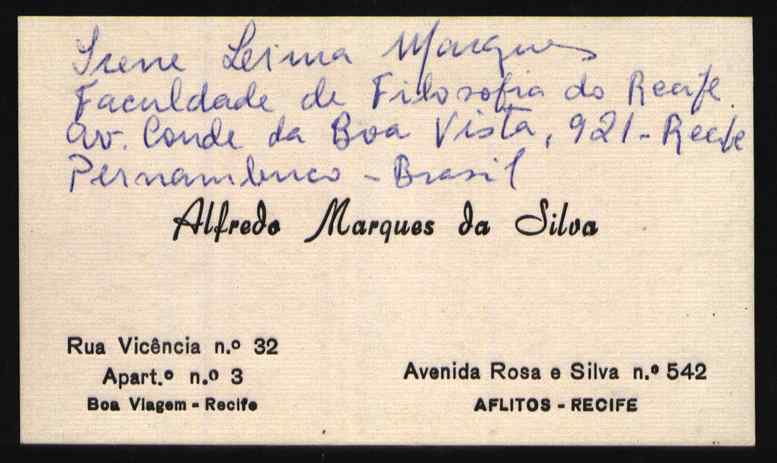 Irene Leima Marques
Faculdade de Filosofia do Recife.
Av. Conde da Boa Vista, 921 - Recife
Pernambuco - Brasil
Alfredo Marques da Silva
Rua Vicência n.º 32
Apart.º n.º 3
Boa Viagem - Recife
Avenida Rosa e Silva n.º 542
AFLITOS - RECIFE